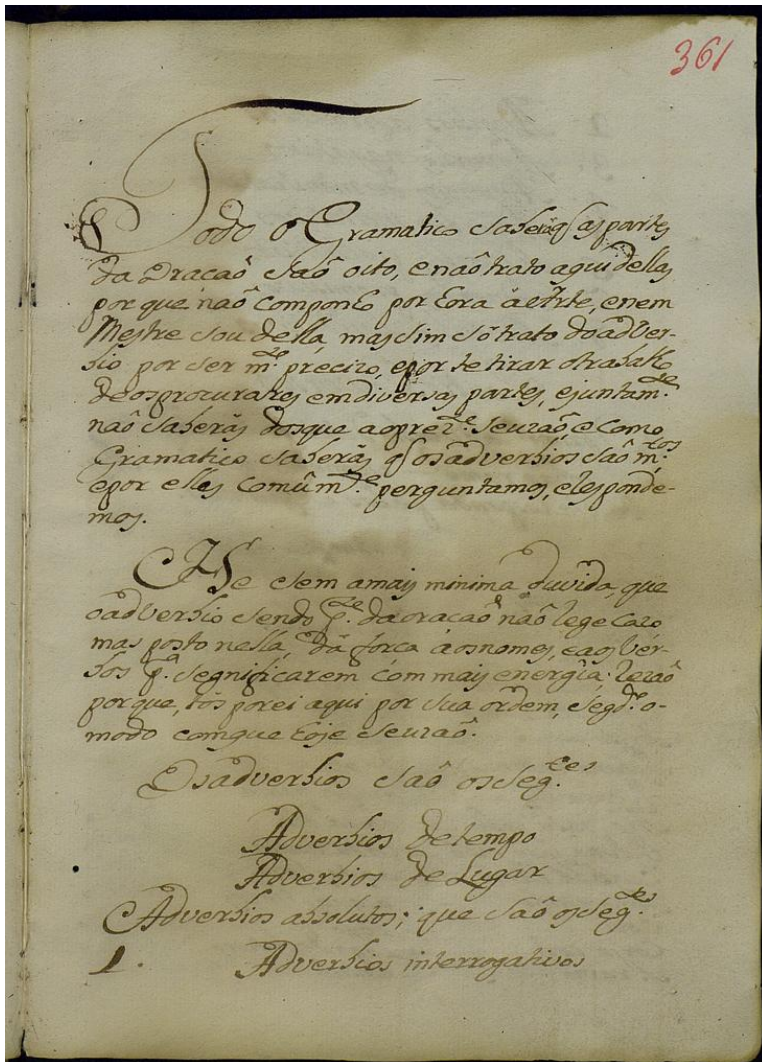 361
Todo o Gramatico saberá q̃ as partes
da Oracaõ saõ oito, e naõ trato aqui dellas
por que naõ componho por hora a Arte, e nem
Mestre sou della, mas sim só trato do adver-
bio por ser m.to precizo, e por te tirar o trabalho
de os procurares em diversas partes, e juntam.te
naõ saberás dos que ao prez.te se uzaõ, e como
Gramatico saberás q̃ os adverbios saõ m.tos
e por elles comũm.te perguntamos, e responde-
mos.
He sem a mais minima duvida, que
o adverbio sendo p.te da oracaõ naõ rege cazo
mas posto nella, dá forca aos nomes, e aos vér-
bos p.a segnificarem com mais energîa; rezaõ
porque, tos porei aqui por sua ordem, e segd.o o-
modo comque hoje se uzaõ.
Os adverbios saõ os seg.tes
Adverbios de tempo
Adverbios de Lugar
Adverbios absolutos; que saõ os seg.tes
1. Adverbios interrogativos